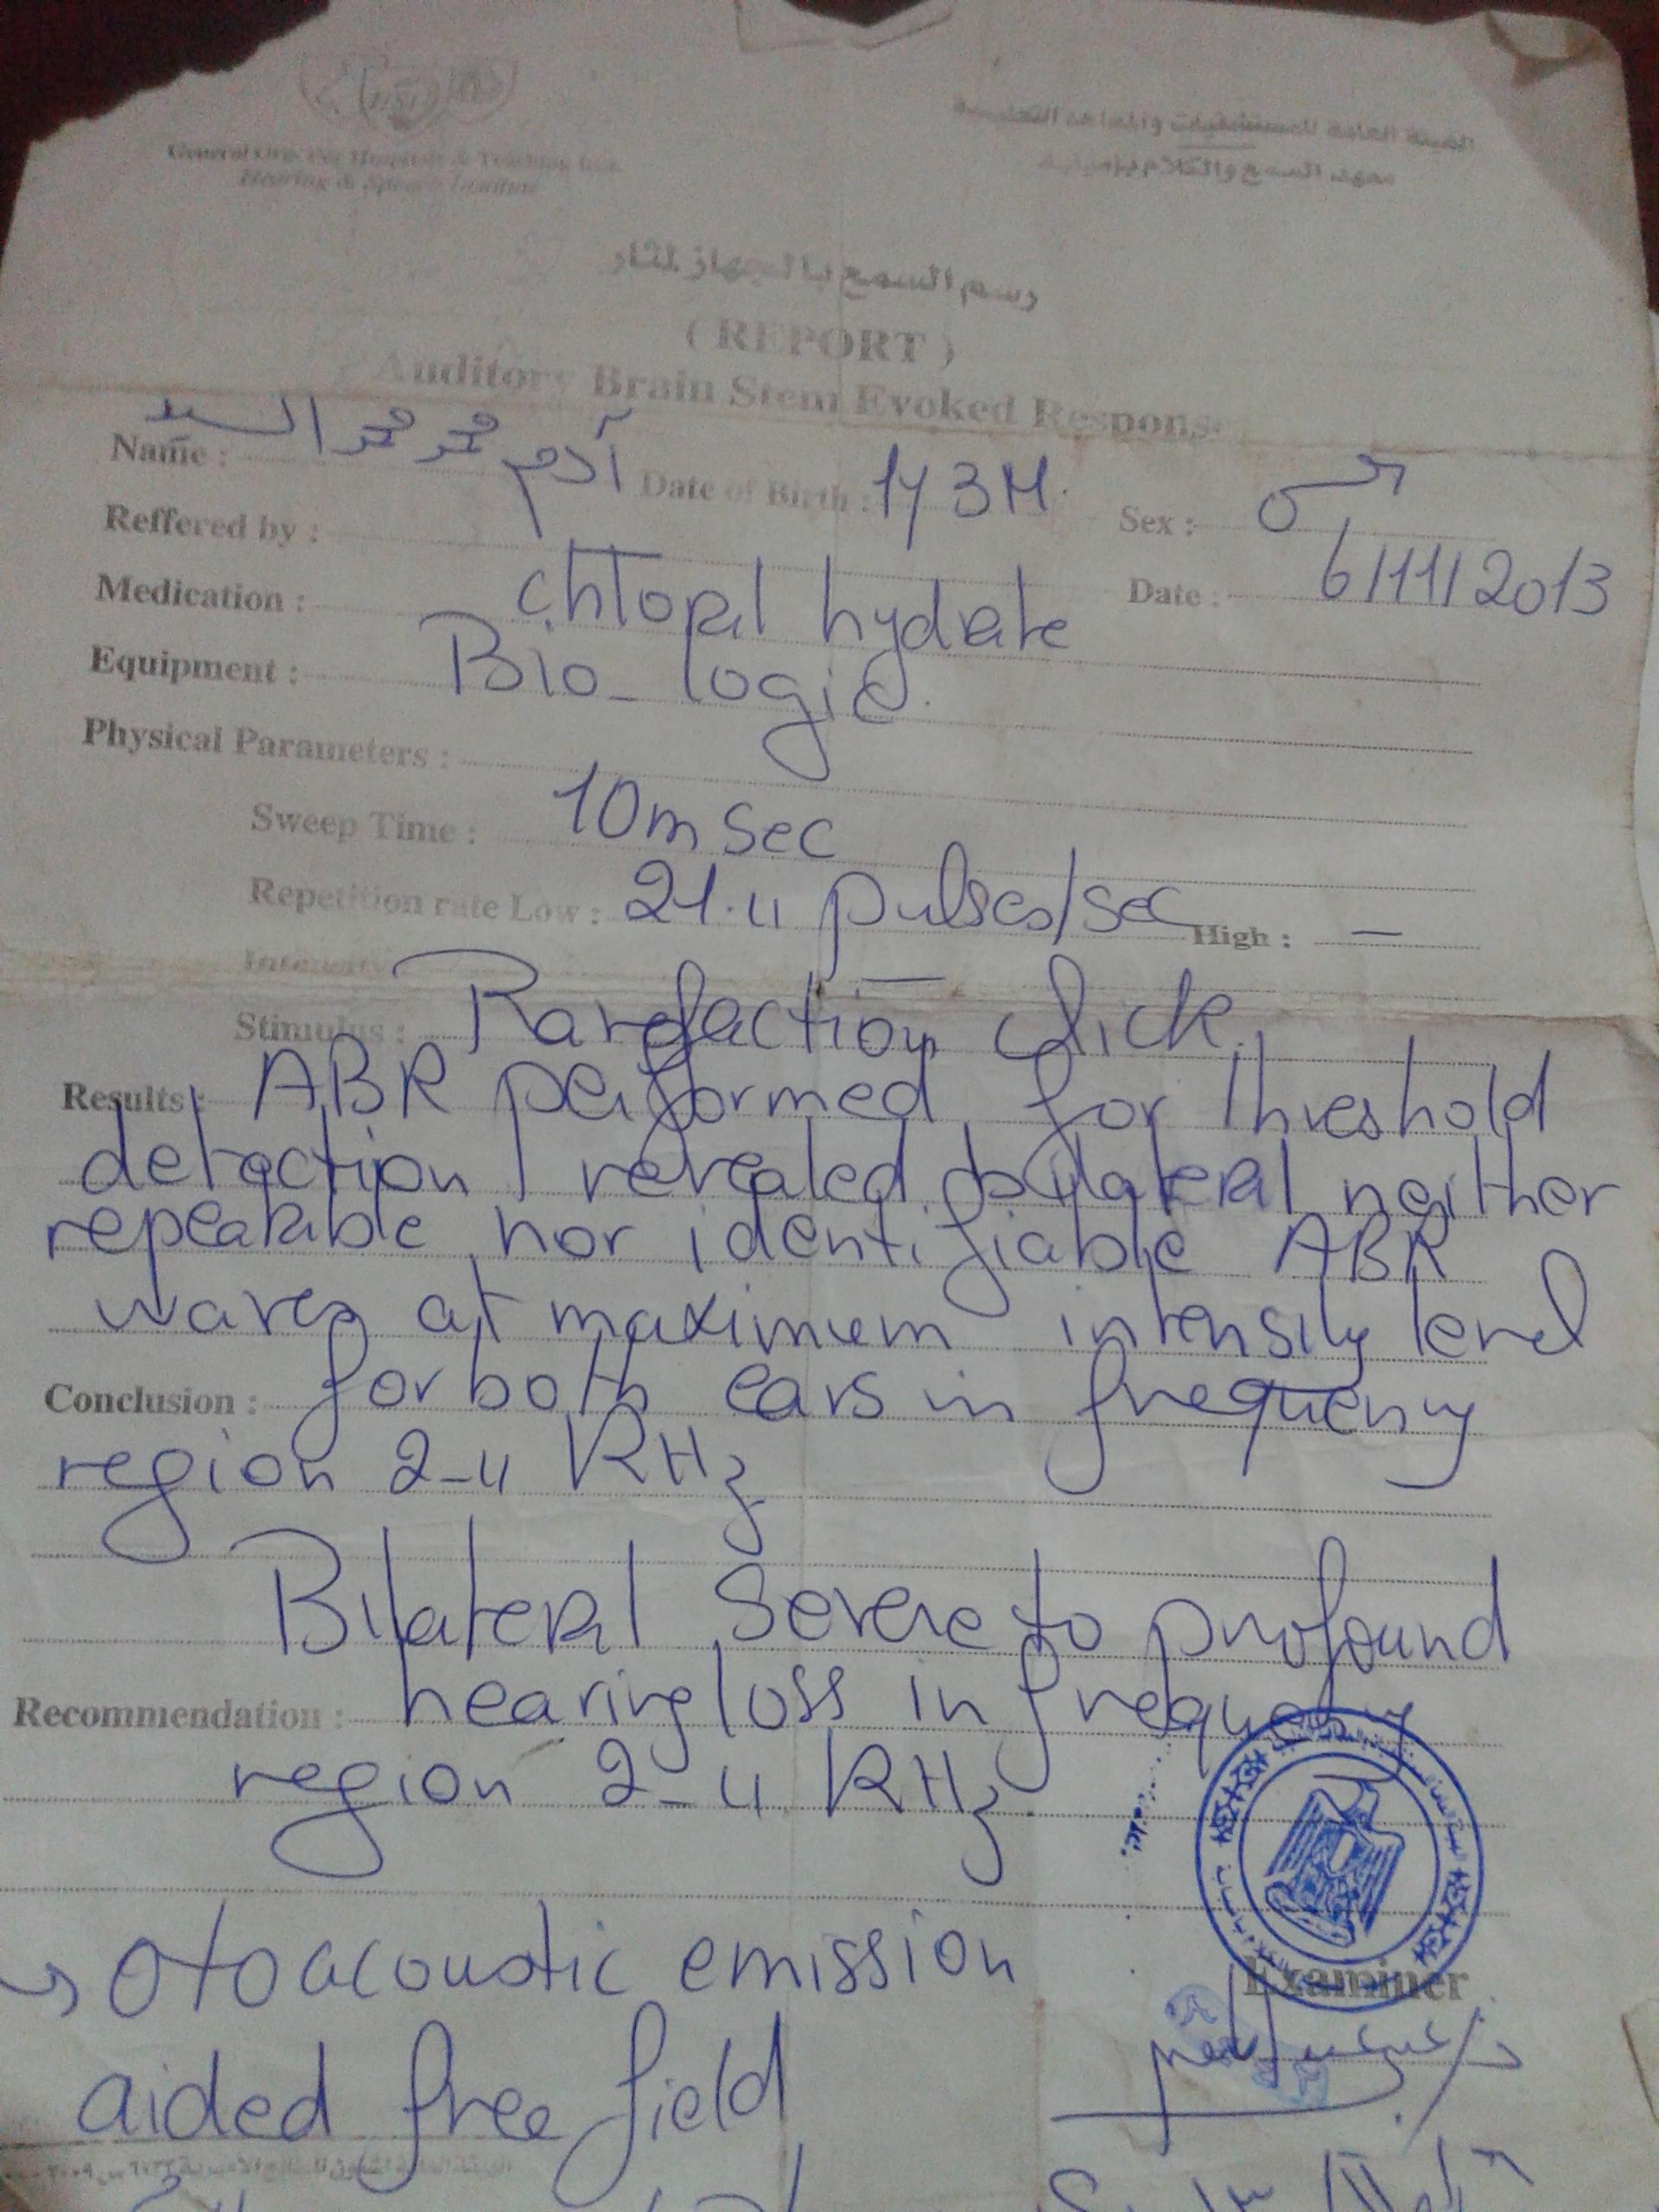 General Org. For Hospitals & Teaching Inst.
Hearing & Speech Institute
الهيئة العامة للمستشفيات والمعاهد التعليمية
معهد السمع والكلام بإمبابة
رسم السمع بالجهاز المثار
( REPORT )
Auditory Brain Stem Evoked Respons
Name : آدم محمد محمد السيد Date of Birth : 1y 3M. Sex :
Reffered by :
Medication : chloral hydrate Date : 6/11/2013
Equipment : Bio-logic.
Physical Parameters :
Sweep Time : 10 m sec
Repetition rate Low : 21.4 pulses/sec High : —
Intensity
Stimulus : Rarefaction click.
Results : ABR performed for threshold
detection revealed bilateral neither
repeatable nor identifiable ABR
waves at maximum intensity level
Conclusion : for both ears in frequency
region 2-4 KHz
Bilateral severe to profound
Recommendation : hearing loss in frequency
region 2-4 KHz.
→ Otoacoustic emission
Examiner
aided free field